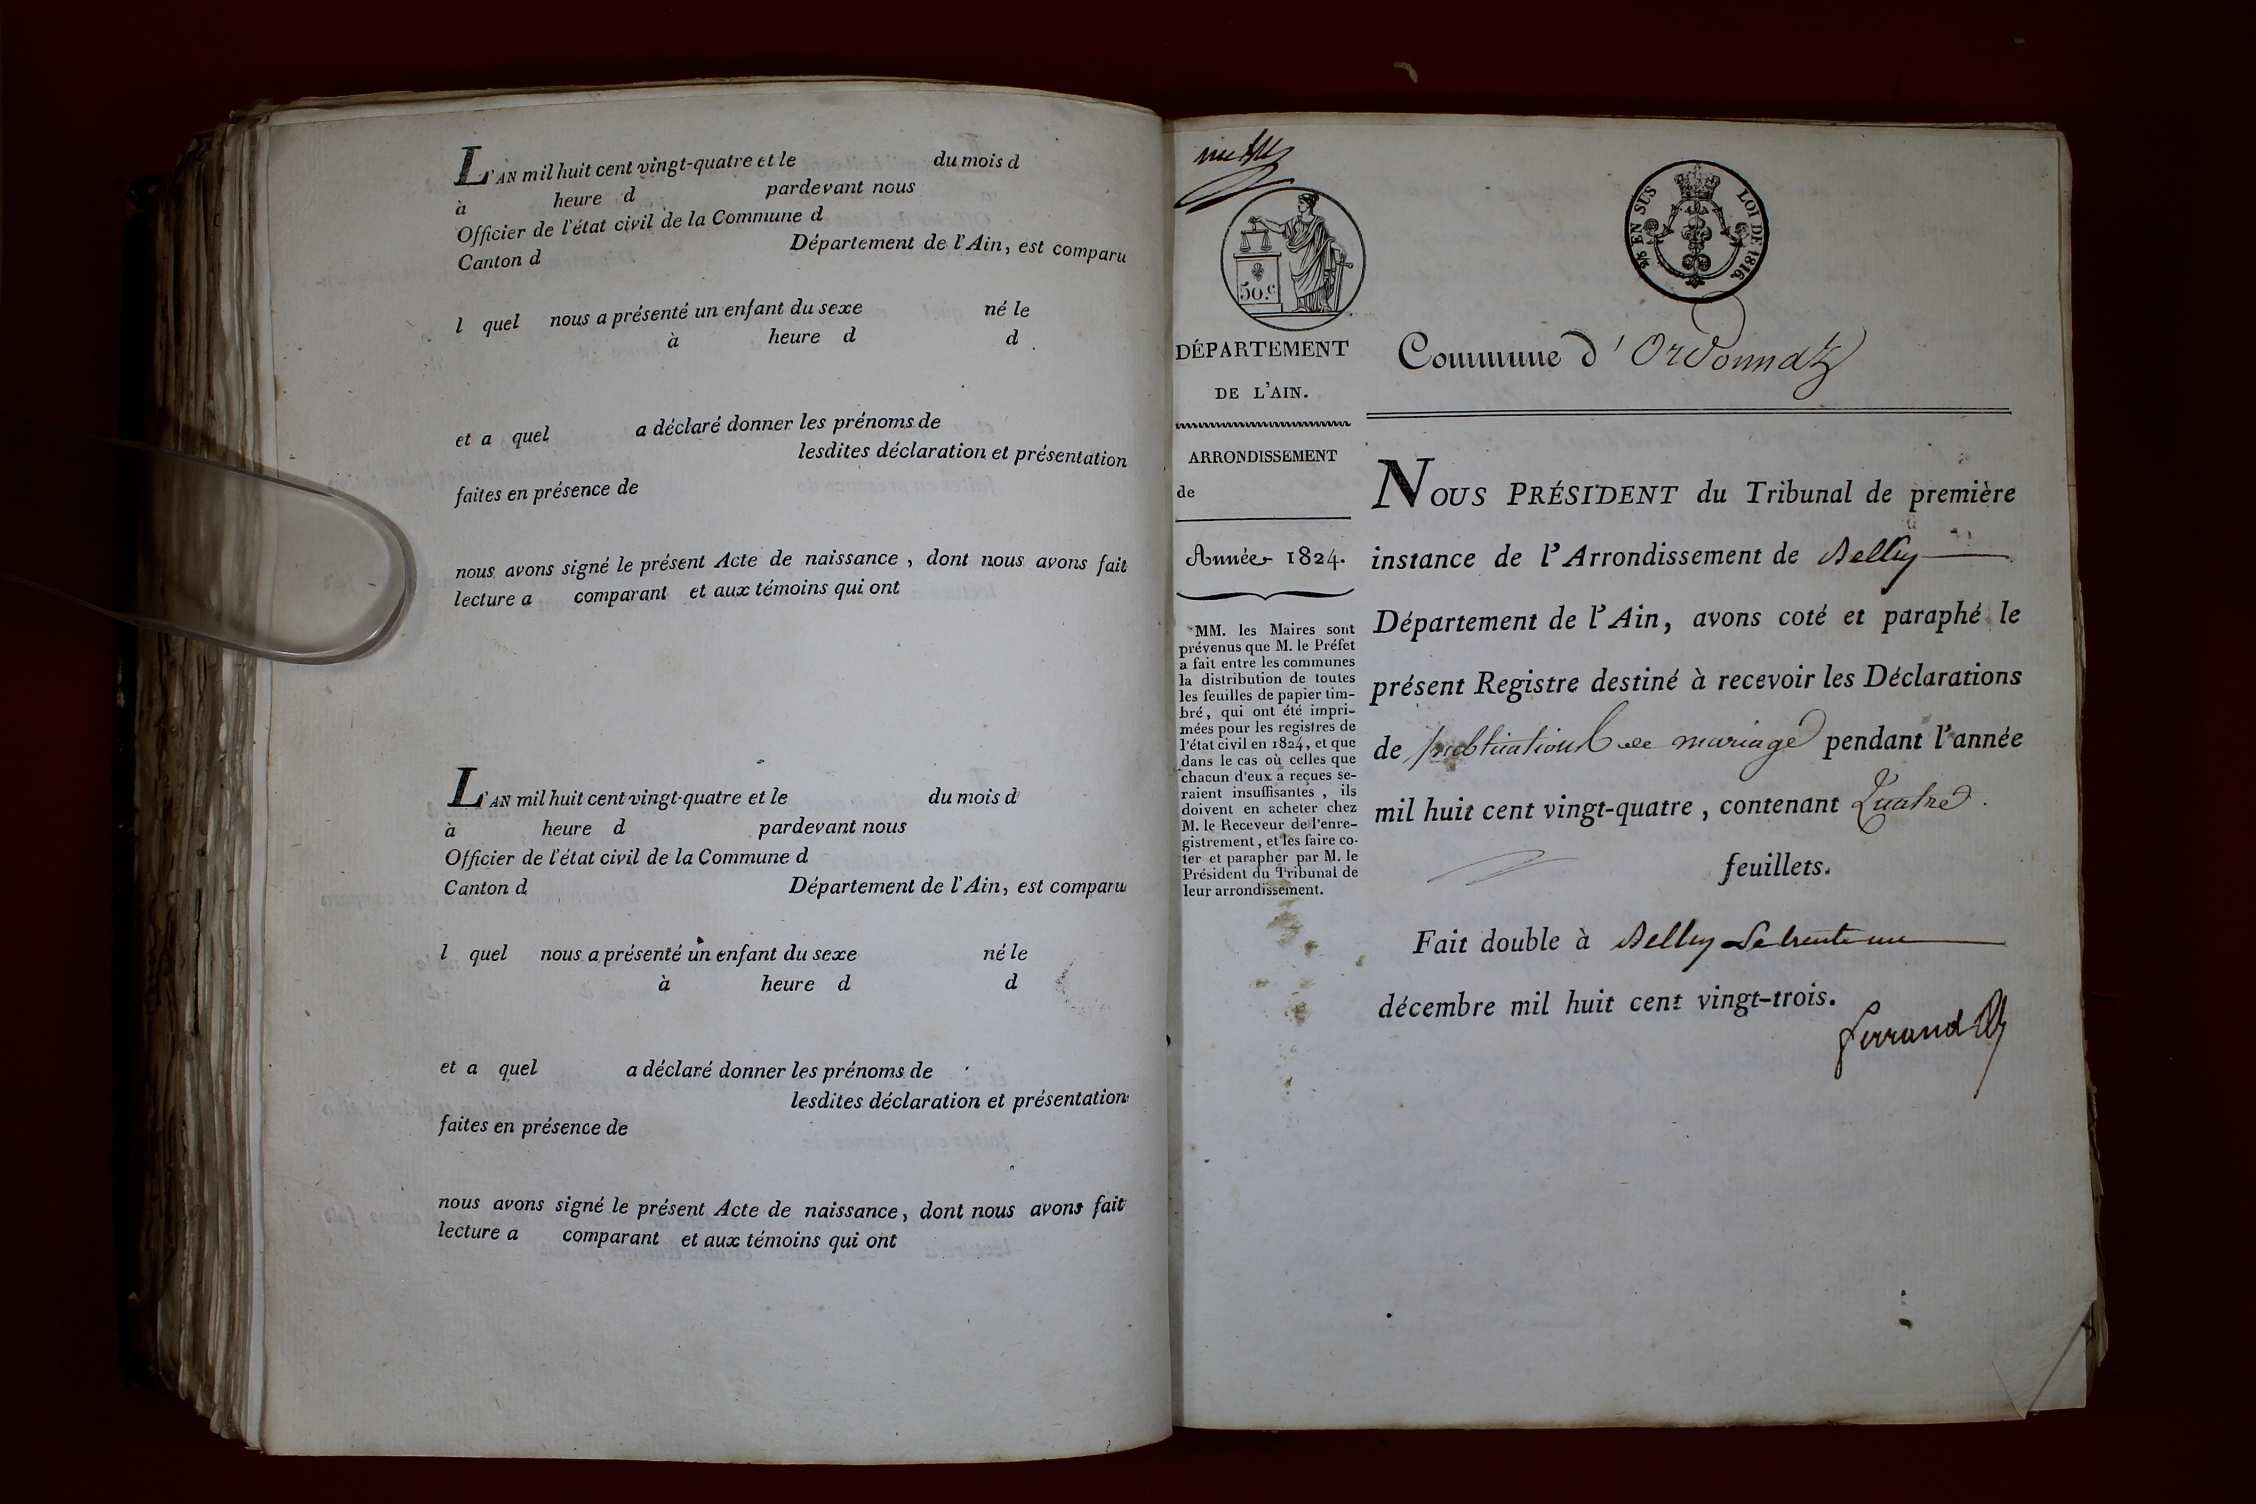 L'AN mil huit cent vingt-quatre et le du mois d
à heure d pardevant nous
Officier de l'état civil de la Commune d
Canton d Département de l'Ain, est comparu
l quel nous a présenté un enfant du sexe né le
à heure d d
et a quel a déclaré donner les prénoms de
lesdites déclaration et présentation
faites en présence de
nous avons signé le présent Acte de naissance, dont nous avons fait
lecture a comparant et aux témoins qui ont
L'AN mil huit cent vingt-quatre et le du mois d
à heure d pardevant nous
Officier de l'état civil de la Commune d
Canton d Département de l'Ain, est comparu
l quel nous a présenté un enfant du sexe né le
à heure d d
et a quel a déclaré donner les prénoms de
lesdites déclaration et présentation
faites en présence de
nous avons signé le présent Acte de naissance, dont nous avons fait
lecture a comparant et aux témoins qui ont
50.c
EN SUS LOI DE 1816.
DÉPARTEMENT
DE L'AIN.
ARRONDISSEMENT
de
Année 1824.
MM. les Maires sont
prévenus que M. le Préfet
a fait entre les communes
la distribution de toutes
les feuilles de papier tim-
bré, qui ont été impri-
mées pour les registres de
l'état civil en 1824, et que
dans le cas où celles que
chacun d'eux a reçues se-
raient insuffisantes, ils
doivent en acheter chez
M. le Receveur de l'enre-
gistrement, et les faire co-
ter et parapher par M. le
Président du Tribunal de
leur arrondissement.
Commune d'Ordonnatz
NOUS PRÉSIDENT du Tribunal de première
instance de l'Arrondissement de Belley
Département de l'Ain, avons coté et paraphé le
présent Registre destiné à recevoir les Déclarations
de publications de mariage pendant l'année
mil huit cent vingt-quatre, contenant Quatre
feuillets.
Fait double à Belley le trente un
décembre mil huit cent vingt-trois.